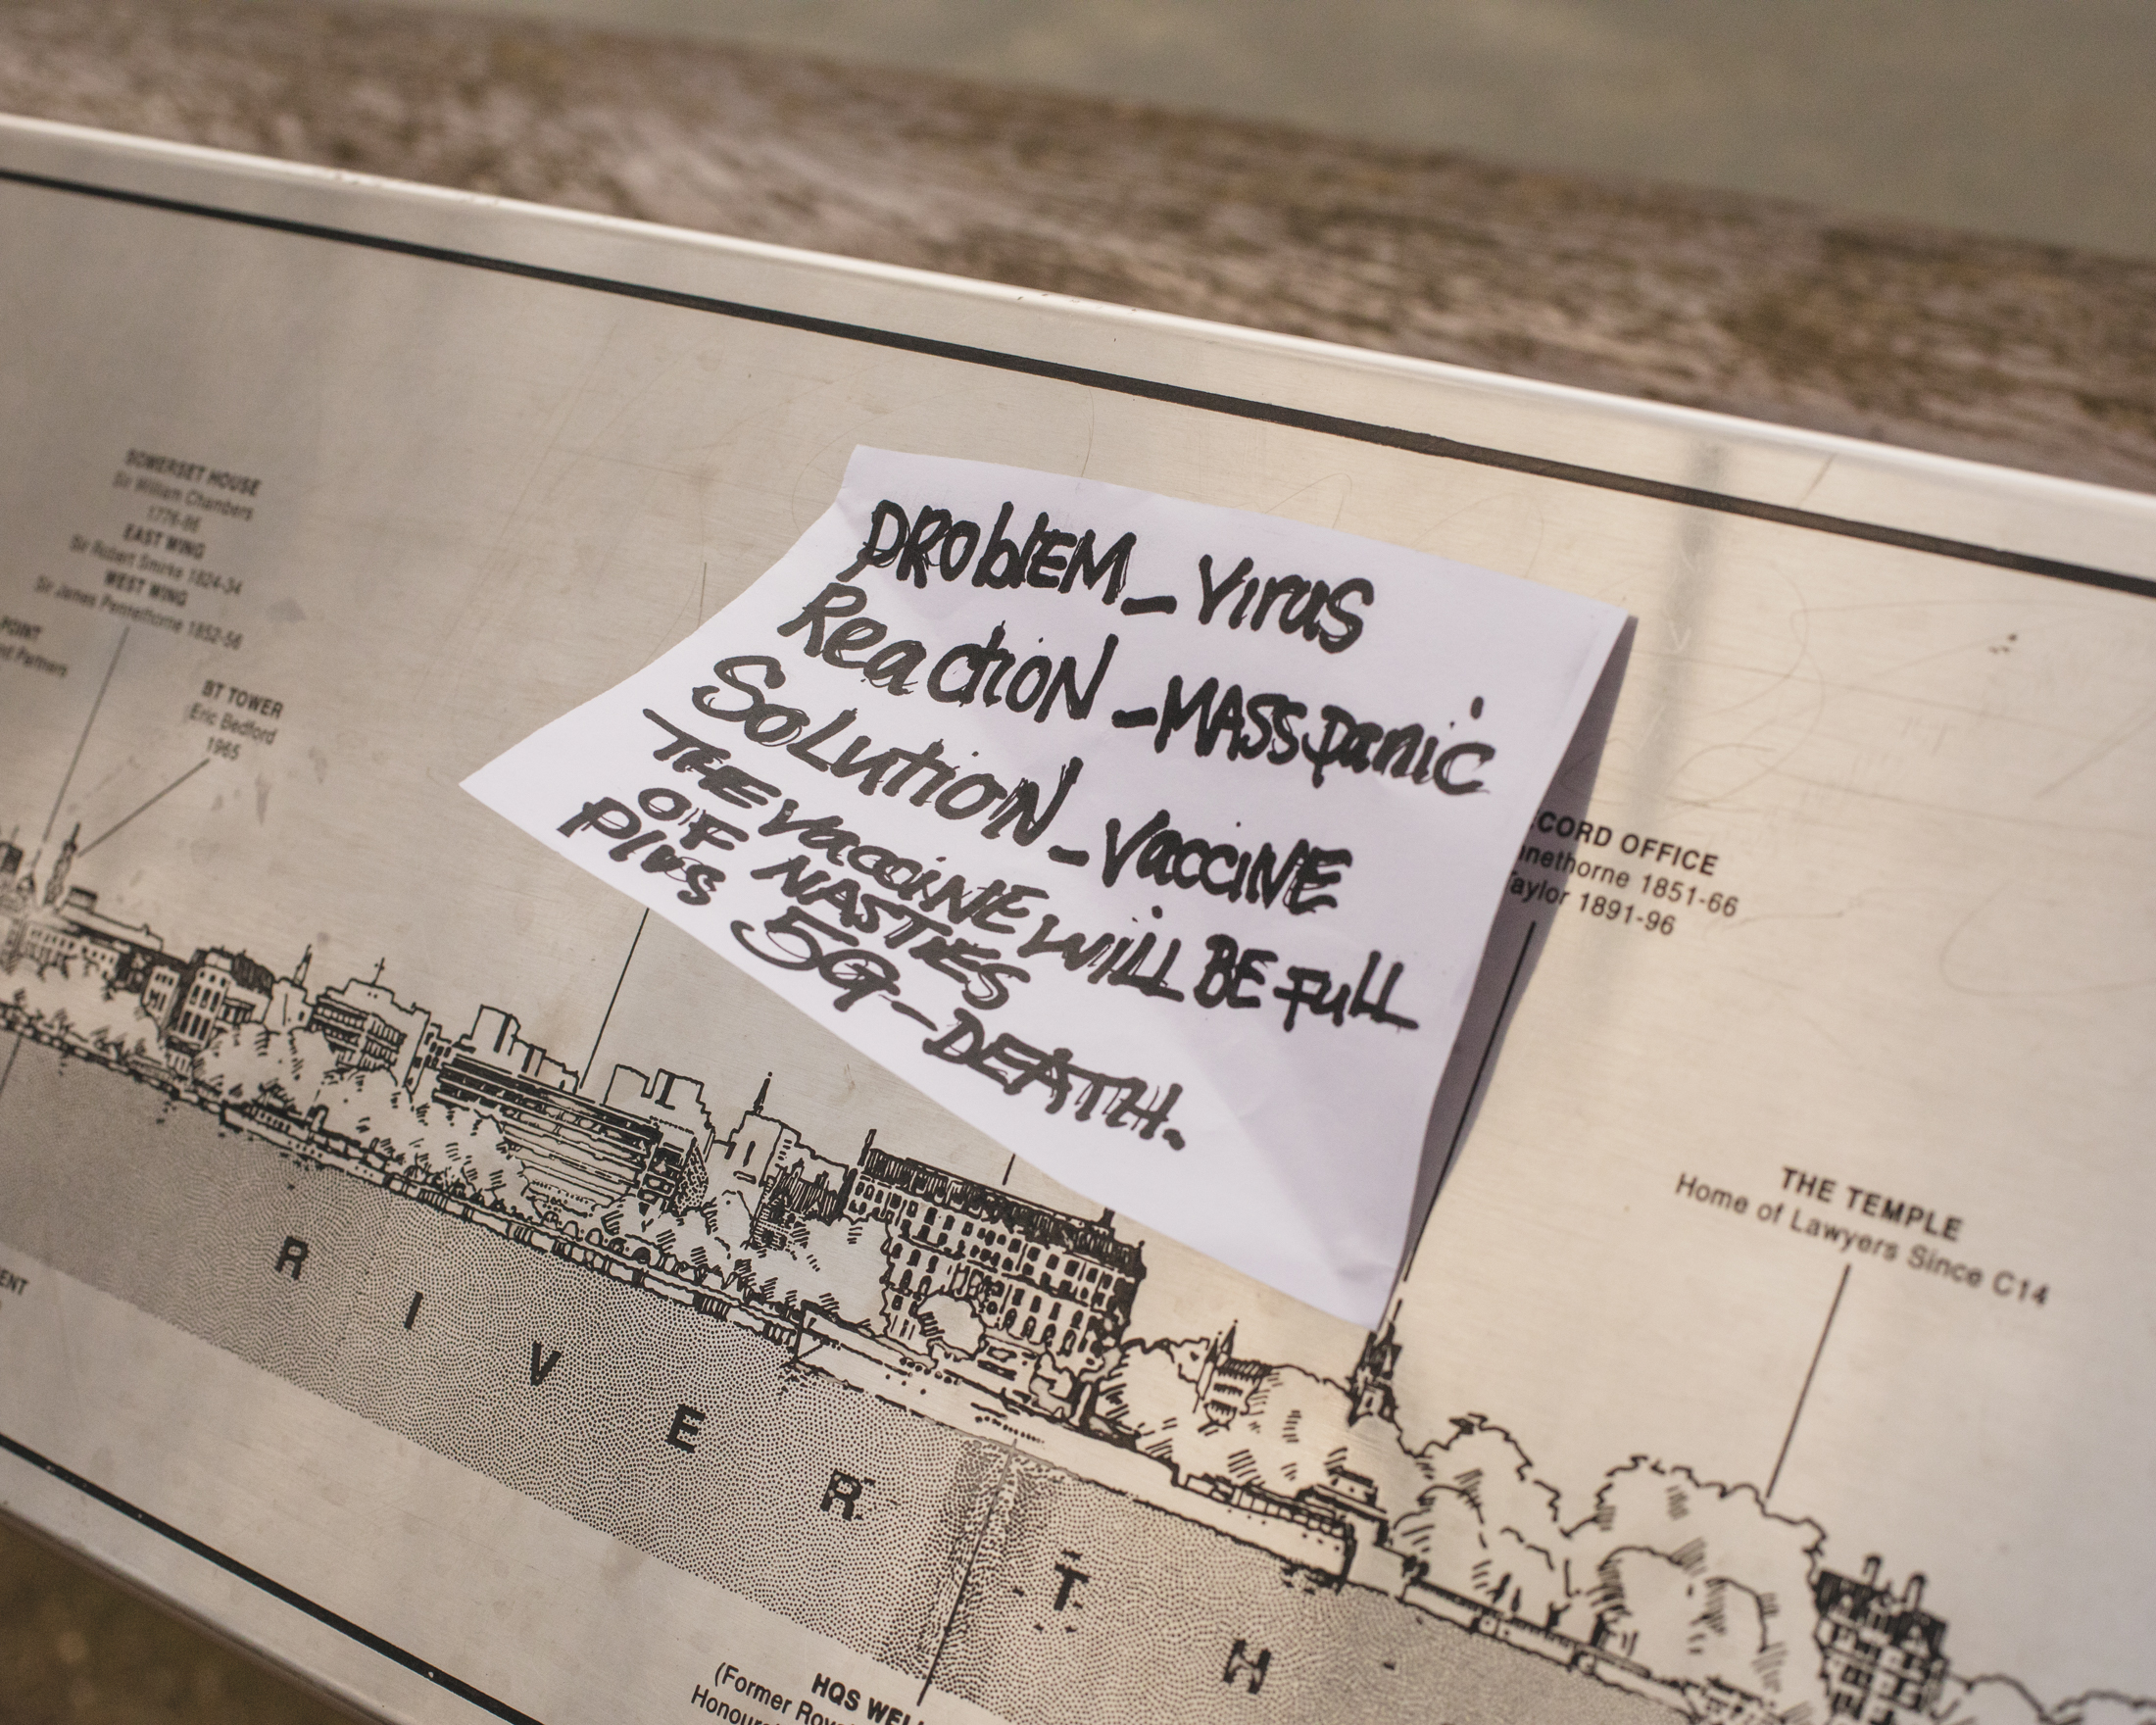 SOMERSET HOUSE
Sir William Chambers
1776-86
EAST WING
Sir Robert Smirke 1824-34
WEST WING
Sir James Pennethorne 1852-56
POINT
Partners
BT TOWER
(Eric Bedford
1965
PRoblEM_Virus
ReactioN_MASS panic
SoLutioN_VacciNE
THE VacciNE will BE Full
OF NASTIES
Plus 5G-DEATH.
CORD OFFICE
nethorne 1851-66
Taylor 1891-96
THE TEMPLE
Home of Lawyers Since C14
R I V E R T H
ENT
HQS WEL
(Former Roy
Honour